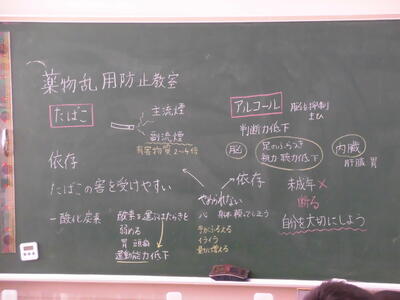 薬物乱用防止教室
たばこ
主流煙
副流煙
有害物質2~4倍
依存
たばこの害を受けやすい
一酸化炭素
酸素を運ぶはたらきを
弱める
胃 頭痛
運動能力低下
アルコール
脳を抑制
まひ
判断力低下
脳
足のふらつき
視力・聴力低下
内臓
肝臓 胃
依存
やめられない
心 身体 頼ってしまう
手がふるえる
イライラ
量が増える
未成年×
断る
自分を大切にしよう